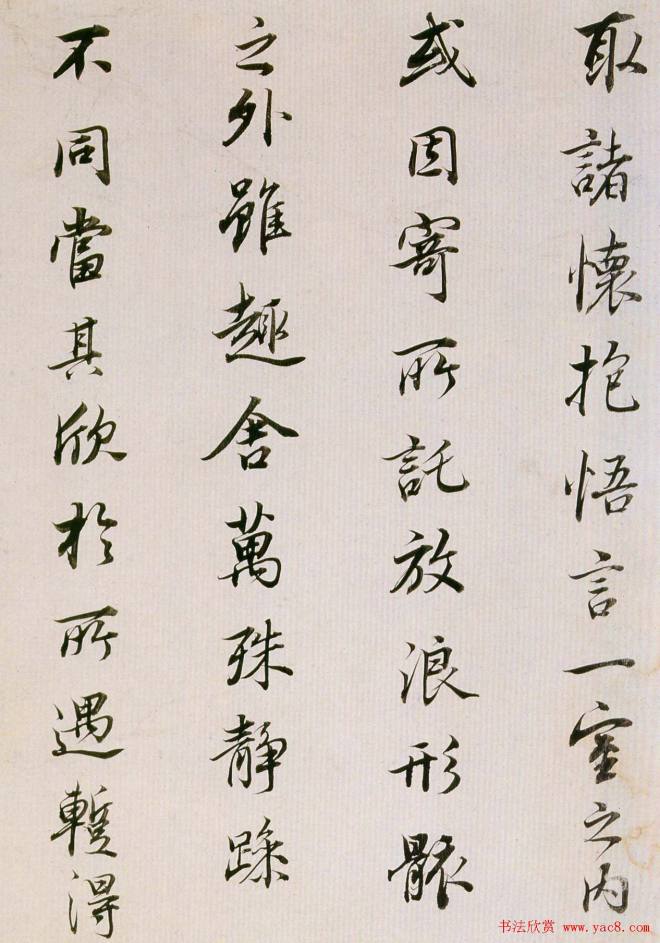 取諸懷抱悟言一室之内
或因寄所託放浪形骸
之外雖趣舍萬殊靜躁
不同當其欣於所遇蹔得
书法欣赏 www.yac8.com